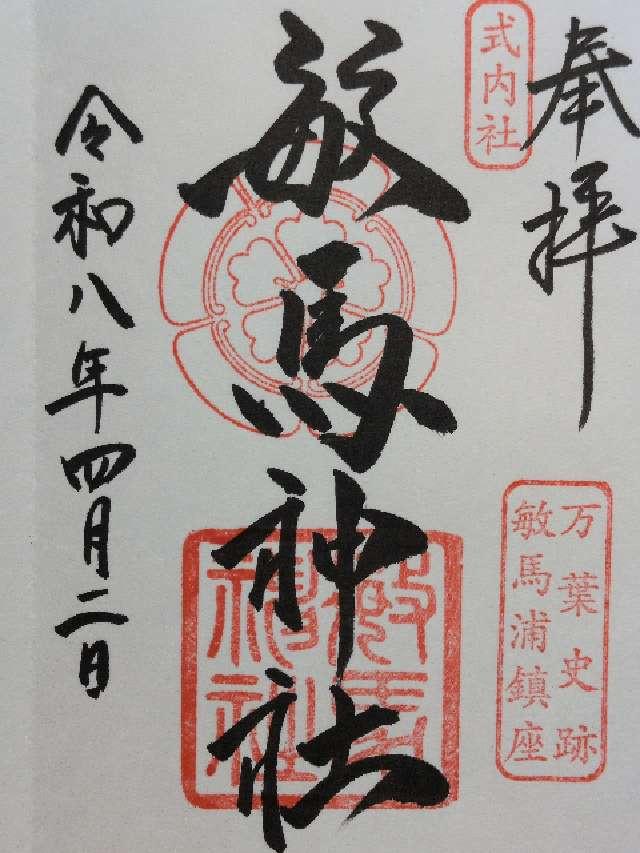 奉拝
式内社
万葉史跡
敏馬浦鎮座
敏馬神社
敏馬
神社
令和八年四月二日